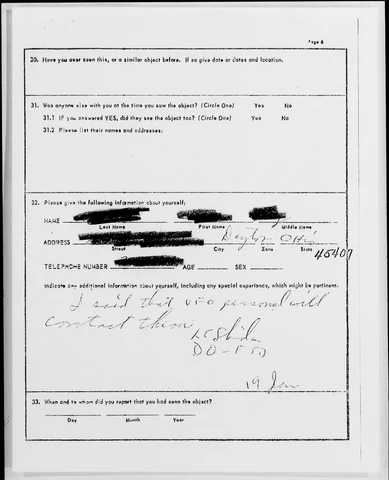 Page 6
30. Have you ever seen this, or a similar object before. If so give date or dates and location.
31. Was anyone else with you at the time you saw the object? (Circle One) Yes No
31.1 IF you answered YES, did they see the object too? (Circle One) Yes No
31.2 Please list their names and addresses:
32. Please give the following information about yourself:
NAME
Last Name First Name Middle Name
Dayton Ohio
ADDRESS
Street City Zone State
45407
TELEPHONE NUMBER AGE SEX
Indicate any additional information about yourself, including any special experience, which might be pertinent.
I said that UFO personal will
contact them
Lt
19 Jan
33. When and to whom did you report that you had seen the object?
Day Month Year